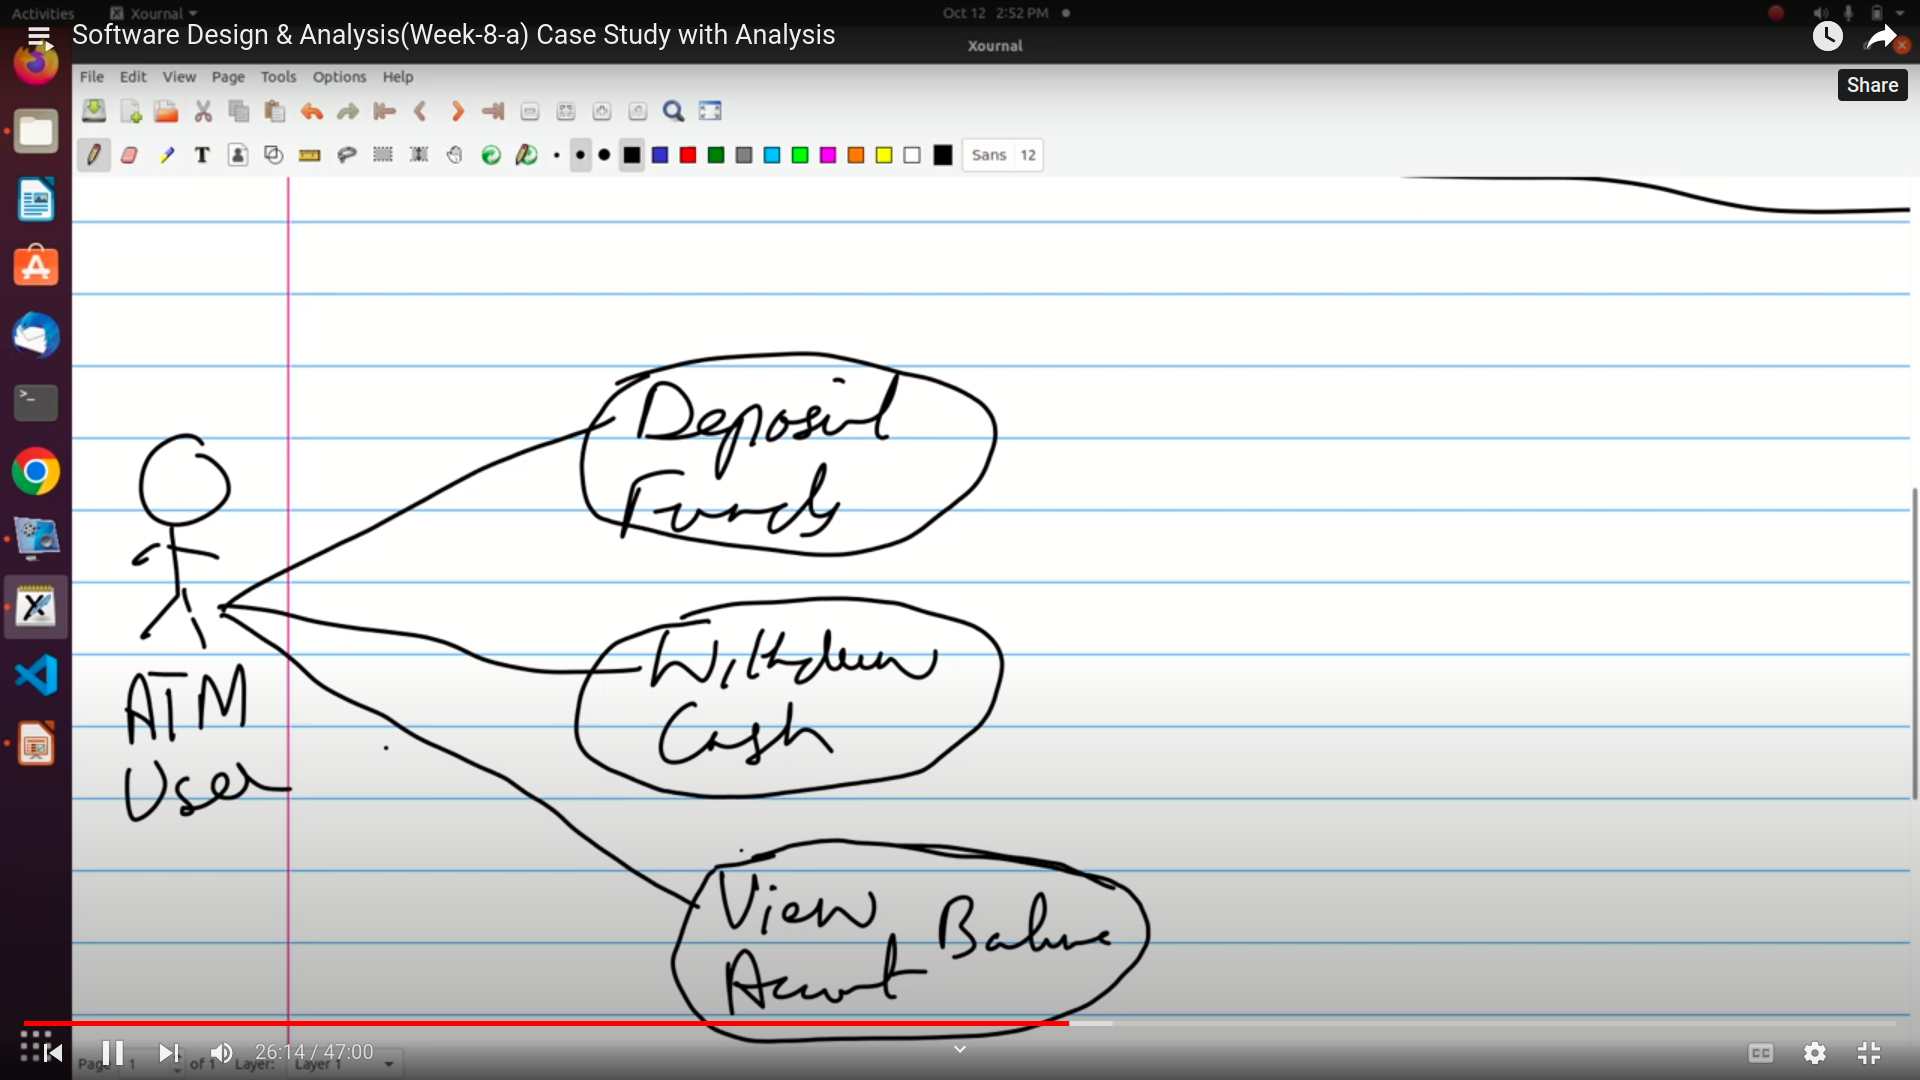 Activities Xournal Oct 12 2:52 PM
Software Design & Analysis(Week-8-a) Case Study with Analysis
Xournal
Share
File Edit View Page Tools Options Help
Sans 12
Deposit
Funds
Withdraw
Cash
ATM
User
View Balance
Account
26:14 / 47:00
CC
Page 1 of 1 Layer: Layer 1